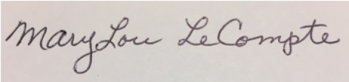 MaryLou LeCompte